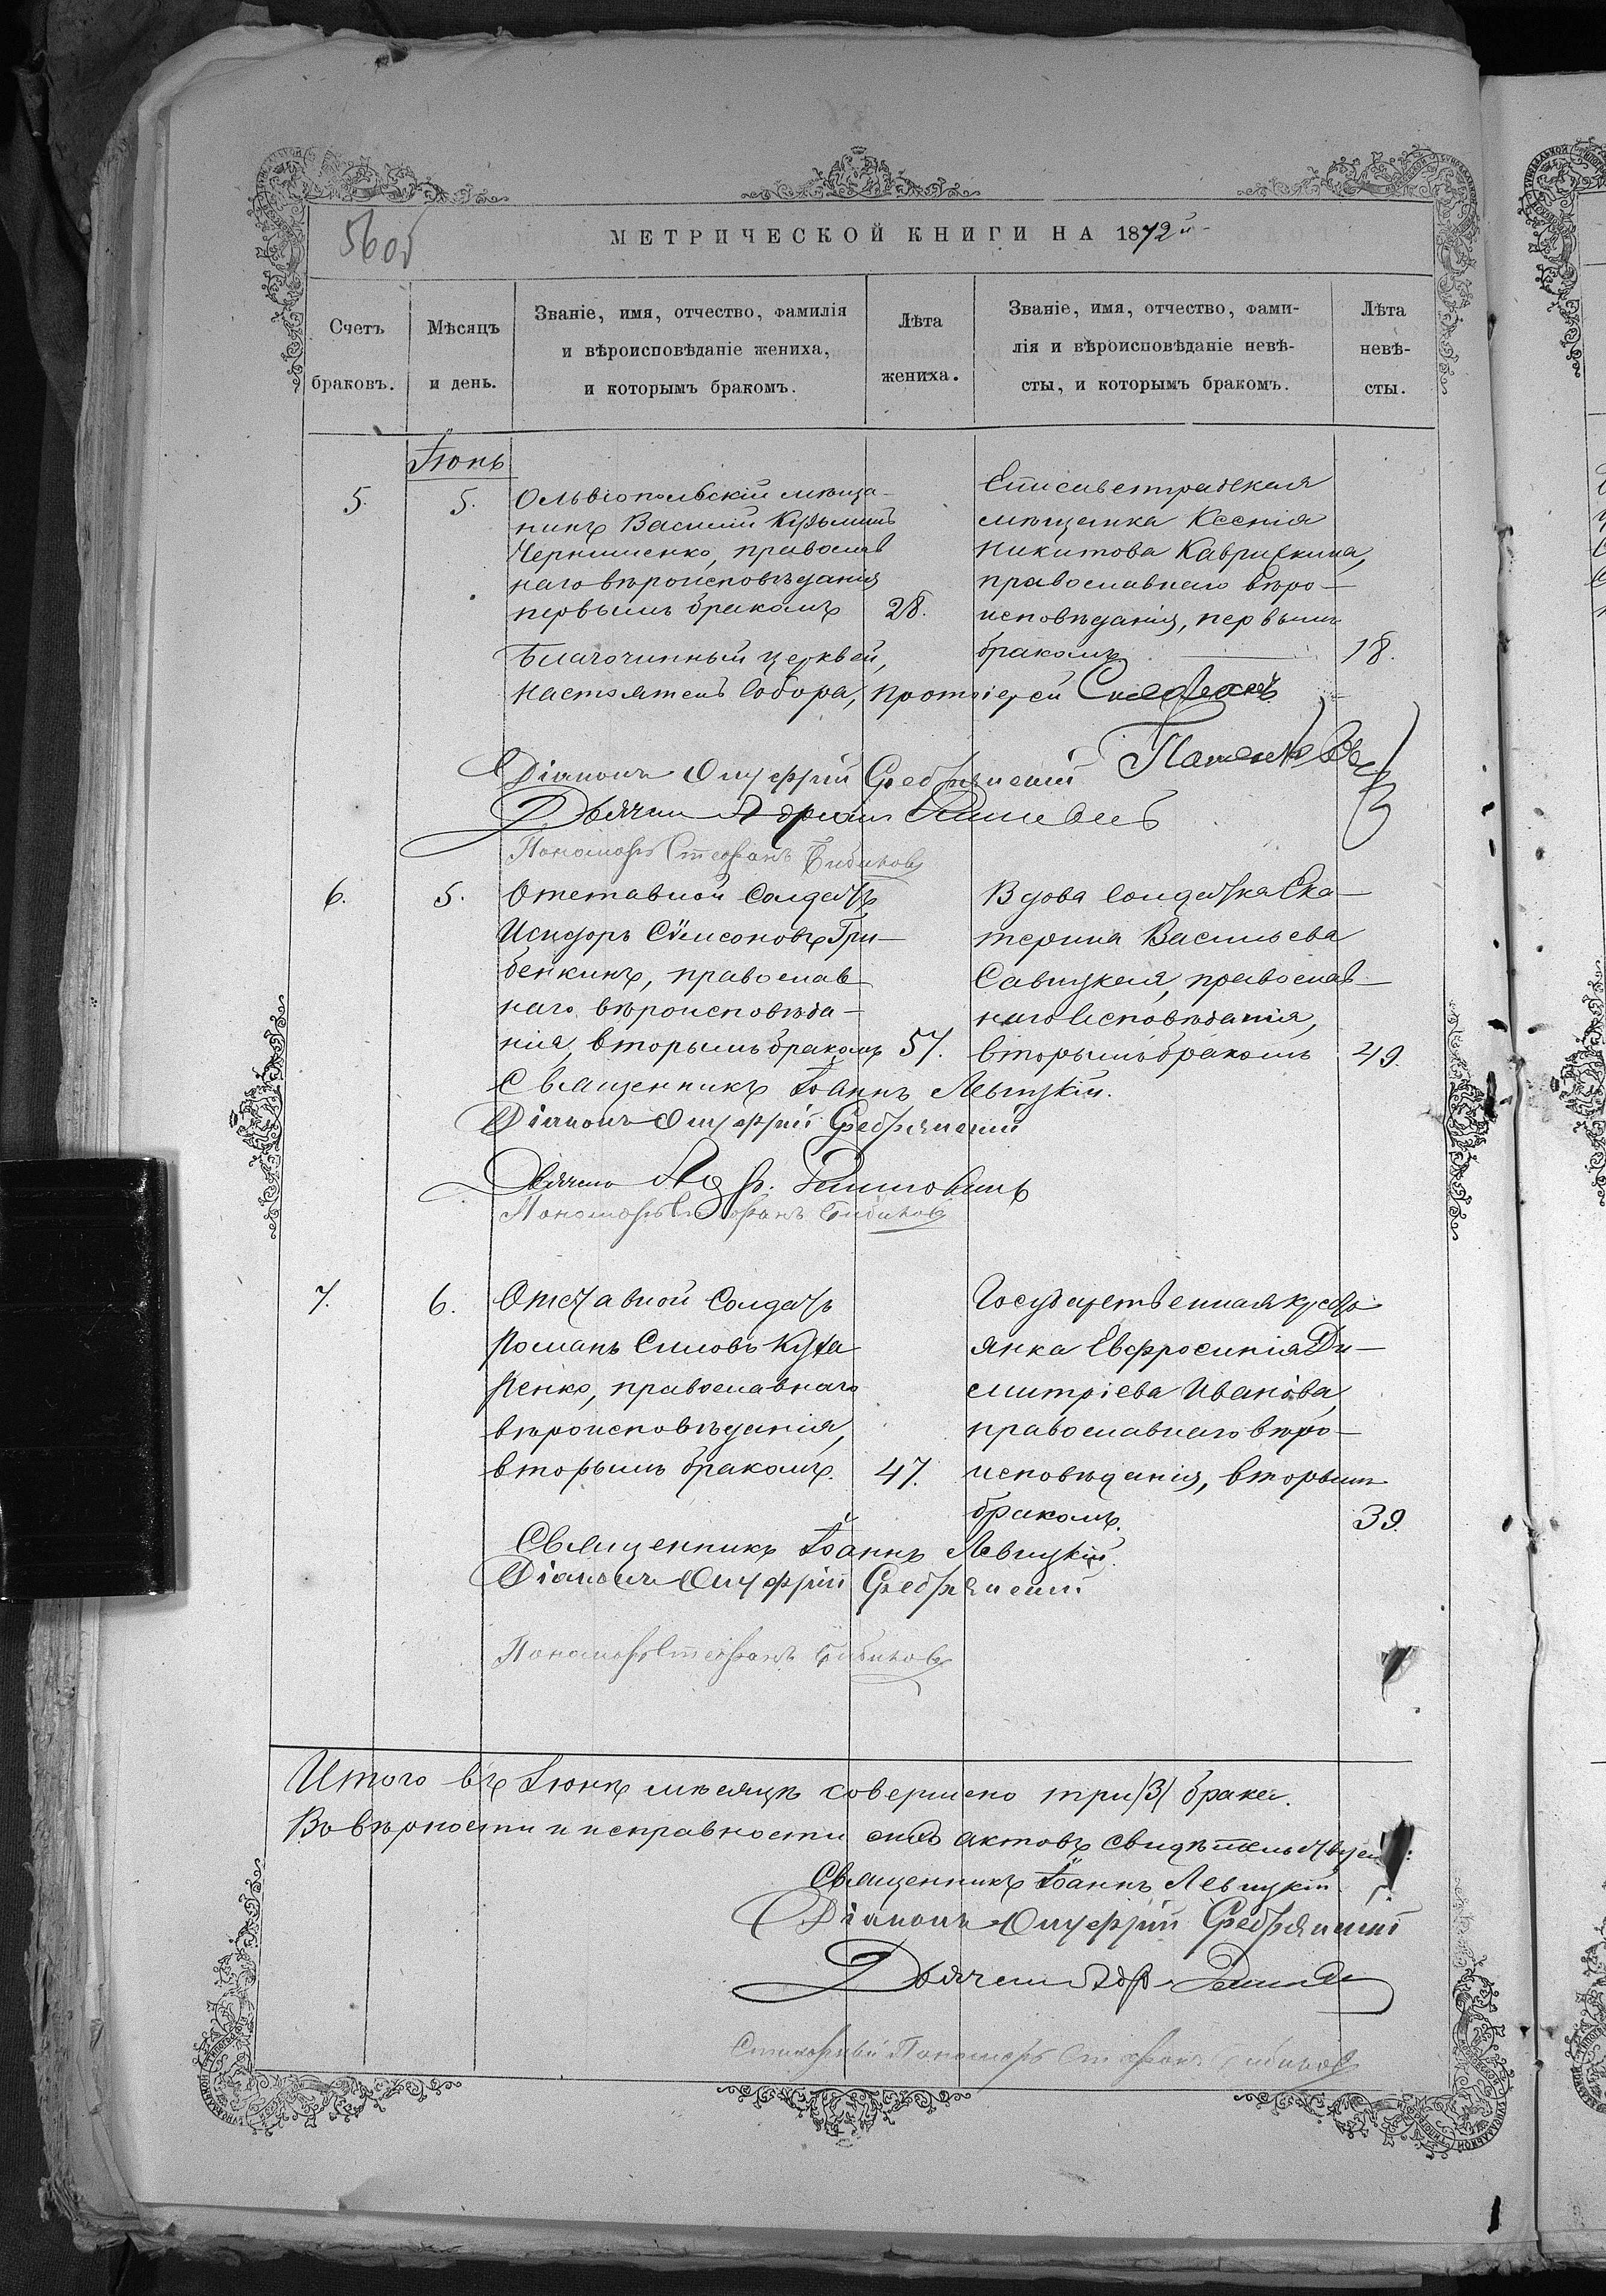 560б
МЕТРИЧЕСКОЙ КНИГИ НА 1872й
Счетъ браковъ.
Мѣсяцъ и день.
Званіе, имя, отчество, фамилія
и вѣроисповѣданіе жениха,
и которымъ бракомъ.
Лѣта жениха.
Званіе, имя, отчество, фами-
лія и вѣроисповѣданіе невѣ-
сты, и которымъ бракомъ.
Лѣта невѣ-
сты.
Іюнь
5.
5.
Ольвіопольскій мѣща-
нинъ Василій Кузьминъ
Чернишенко, православ
наго вѣроисповѣданія
первымъ бракомъ
28.
Елисаветградская
мѣщанка Ксенія
Никитова
православнаго вѣро-
исповѣданія, первымъ
бракомъ
18.
Благочинный церквей,
Настоятель Собора, протоіерей
Діаконъ Онуфрій Серебрянскій
Дьячекъ Адріанъ
Пономарь Стефанъ Бибиковъ
6.
5.
Отставной Солдатъ
Исидоръ Сѵмеоновъ Гри-
бенкинъ, православ
наго вѣроисповѣда-
нія, вторымъ бракомъ
57.
Вдова Солдатка Ека-
терина Васильева
Савицкая, православ-
наго исповѣданія,
вторымъ бракомъ
49.
Священникъ Іоаннъ Левицкій.
Діаконъ Онуфрій Серебрянскій
Дьячекъ Адр.
Пономарь Стефанъ Бибиковъ
7.
6.
Отставной Солдатъ
Романъ Симовъ Куха
ренко, православнаго
вѣроисповѣданія,
вторымъ бракомъ.
47.
Государственная кресть
янка Евфросинія Ди-
митріева Иванова,
православнаго вѣро-
исповѣданія, вторымъ
бракомъ.
39.
Священникъ Іоаннъ Левицкій.
Діаконъ Онуфрій Серебрянскій
Пономарь Стефанъ Бибиковъ
Итого въ Іюнѣ мѣсяцѣ совершено три /3/ брака.
Въ вѣрности и исправности сихъ актовъ свидѣтельствуемъ:
Священникъ Іоаннъ Левицкій
Діаконъ Онуфрій Серебрянскій
Дьячекъ Адр.
Стихарный Пономарь Стефанъ Бибиковъ